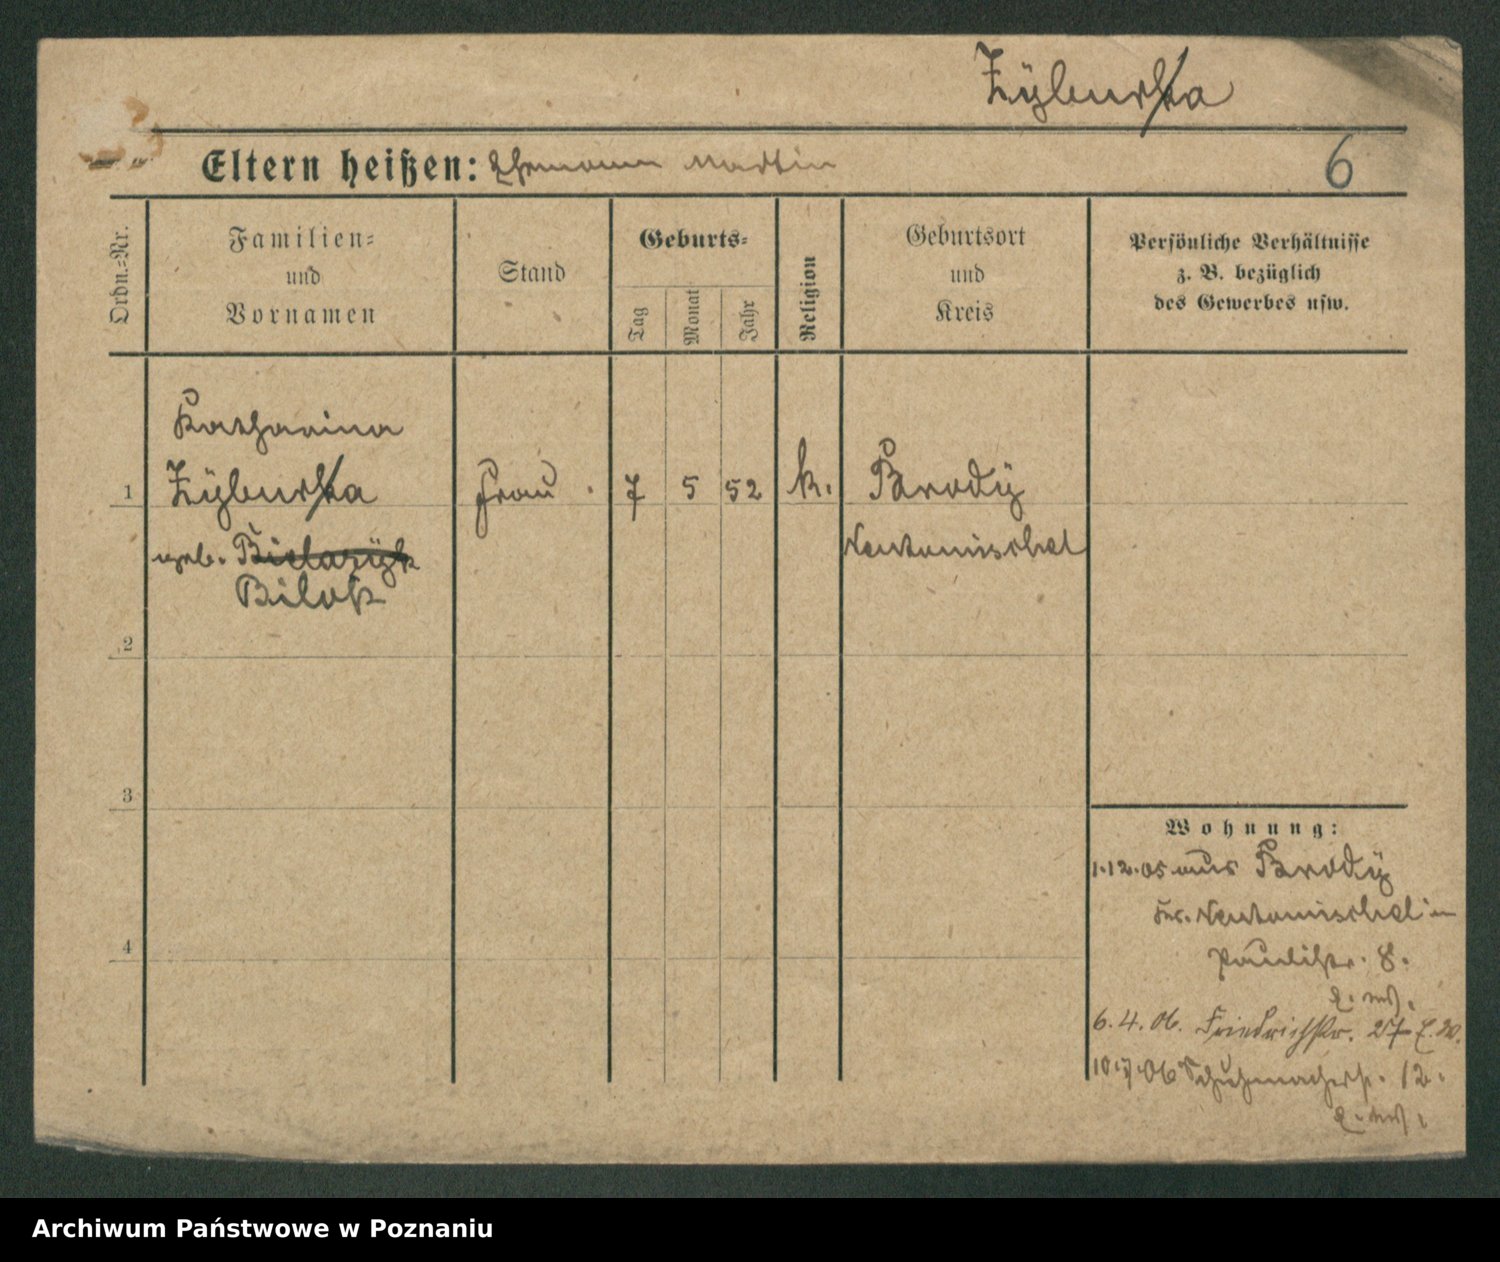 Zyburska
Eltern heißen: Ehemann Martin
6
Ordn.-Nr.
Familien-
und
Vornamen
Stand
Geburts-
Tag
Monat
Jahr
Religion
Geburtsort
und
Kreis
Persönliche Verhältnisse
z. B. bezüglich
des Gewerbes usw.
Katharina
1 Zyburska Frau. 7 5 52 k. Brody
Neutomischel
geb. Bielazyk
Bilok
2
3
4
Wohnung:
1.12.05 aus Brody
Kr. Neutomischel in
Paulistr. 8.
6.4.06. Friedrichstr. 27
10.7.06 Schuhmacherstr. 12.
Archiwum Państwowe w Poznaniu